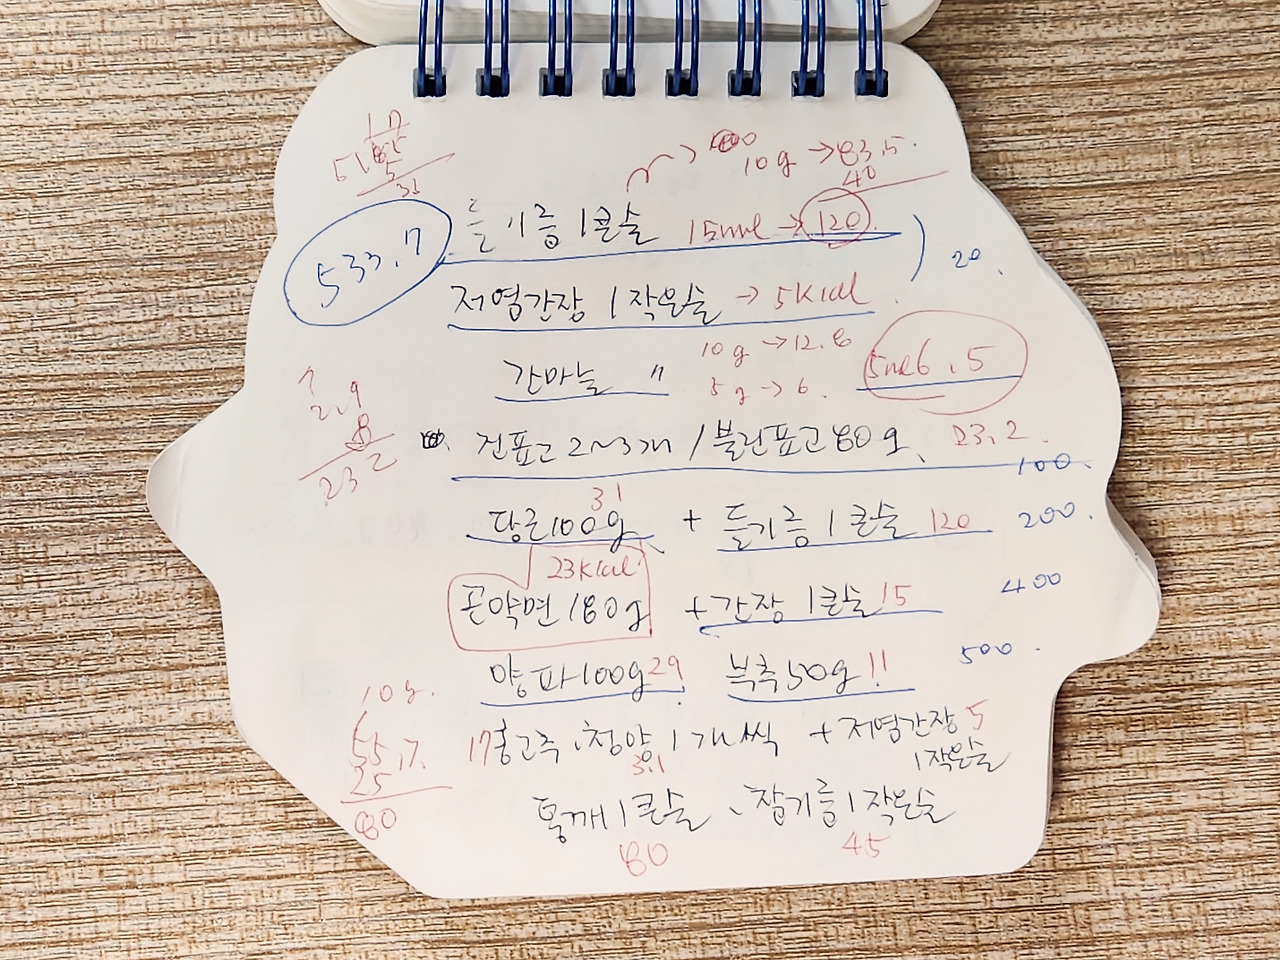 10g → 83.5
40
533.7 들기름 1큰술 15ml → 120
20.
저염간장 1작은술 → 5kcal
간마늘 〃 10g → 12.8
5g → 6. 6.5
건표고 2~3개 / 불린표고 80g 23.2
2.9
8
23 2
100.
당근 100g 31 + 들기름 1큰술 120 200.
23kcal
곤약면 180g + 간장 1큰술 15 400
양파 100g 29 부추 50g 11 500.
17 홍고추, 청양 1개씩 + 저염간장 5
3.1 1작은술
10g.
55.7.
25
80
통깨 1큰술, 참기름 1작은술
80 45